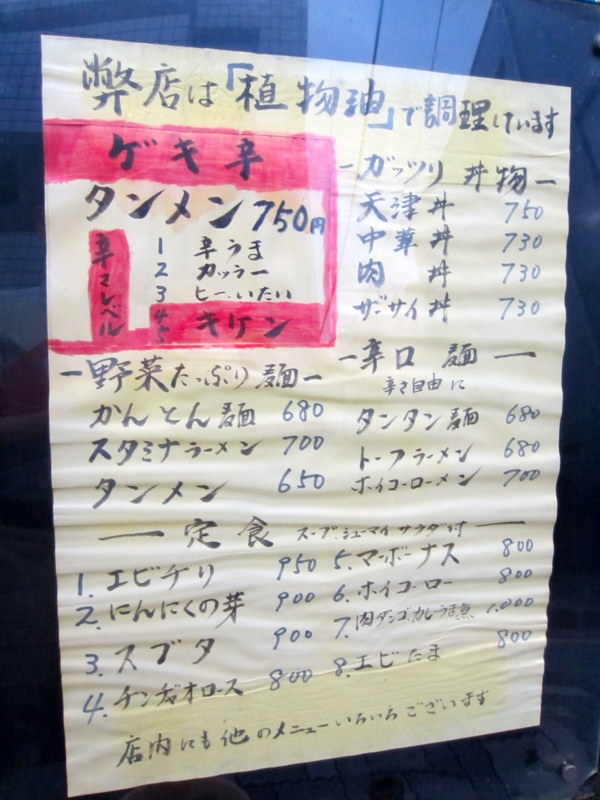 弊店は「植物油」で調理しています
ゲキ辛
タンメン 750円
辛さレベル
1 辛うま
2 カッラー
3 ヒー、いたい
4 キケン
5
ー野菜たっぷり麺ー
かんとん麺 680
スタミナラーメン 700
タンメン 650
ーガッツリ丼物ー
天津丼 750
中華丼 730
肉丼 730
ザーサイ丼 730
ー辛口麺ー
辛さ自由に
タンタン麺 680
トーフラーメン 680
ホイコーローメン 700
ー定食 スープ、シューマイ サラダ付ー
1. エビチリ 950
2. にんにくの芽 900
3. スブタ 900
4. チンヂャオロース 800
5. マーボーナス 800
6. ホイコーロー 800
7. 肉ダンゴ カレーうま煮 1.000
8. エビたま 800
店内にも他のメニューいろいろございます